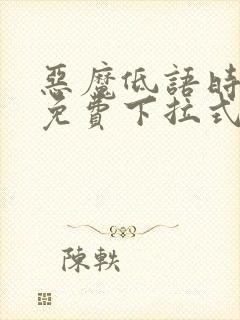 惡魔低語時
免費下拉式
陳軼